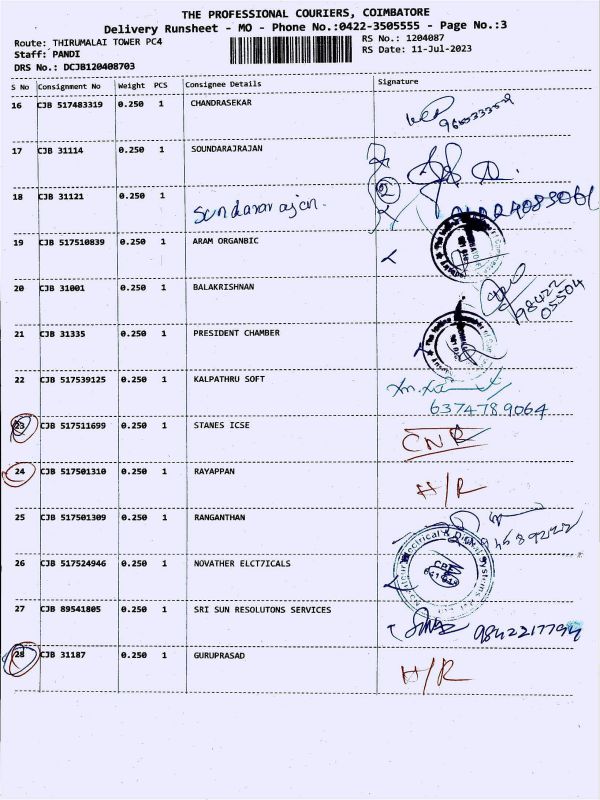 THE PROFESSIONAL COURIERS, COIMBATORE
Delivery Runsheet - MO - Phone No.:0422-3505555 - Page No.:3
Route: THIRUMALAI TOWER PC4 RS No.: 1204087
Staff: PANDI RS Date: 11-Jul-2023
DRS No.: DCJB120408703
S No Consignment No Weight PCS Consignee Details Signature
16 CJB 517483319 0.250 1 CHANDRASEKAR
17 CJB 31114 0.250 1 SOUNDARAJRAJAN
2
18 CJB 31121 0.250 1 Sundararajan.
19 CJB 517510839 0.250 1 ARAM ORGANBIC
20 CJB 31001 0.250 1 BALAKRISHNAN
98422
05504
21 CJB 31335 0.250 1 PRESIDENT CHAMBER
22 CJB 517539125 0.250 1 KALPATHRU SOFT
6374789064
23 CJB 517511699 0.250 1 STANES ICSE CNR
24 CJB 517501310 0.250 1 RAYAPPAN H/R
25 CJB 517501309 0.250 1 RANGANTHAN
26 CJB 517524946 0.250 1 NOVATHER ELCT7ICALS
Electrical & Digital Systems
27 CJB 89541805 0.250 1 SRI SUN RESOLUTONS SERVICES
9842217794
28 CJB 31187 0.250 1 GURUPRASAD H/R